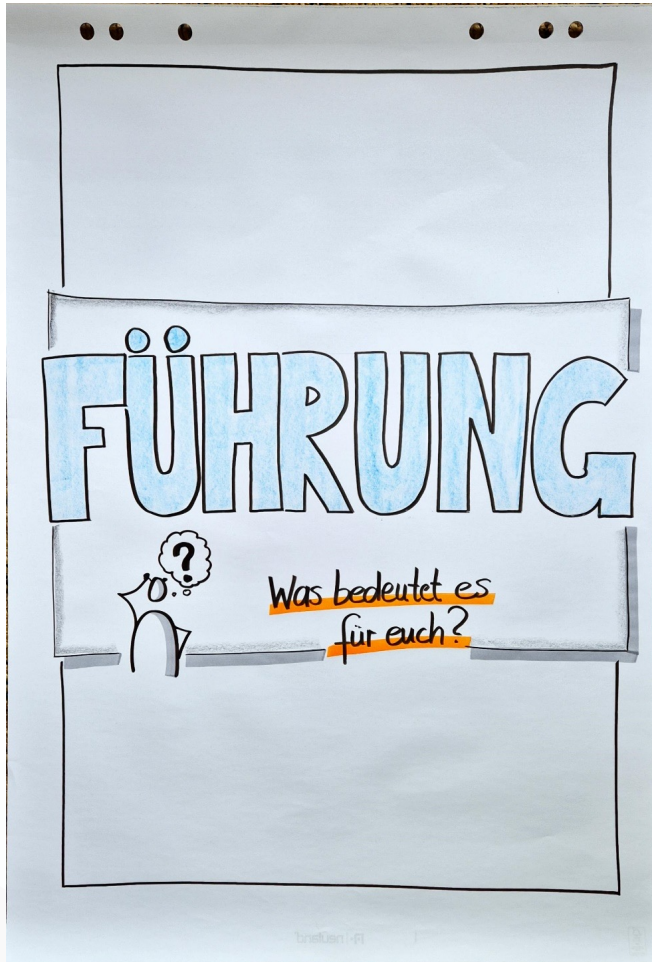 FÜHRUNG
?
Was bedeutet es
für euch?